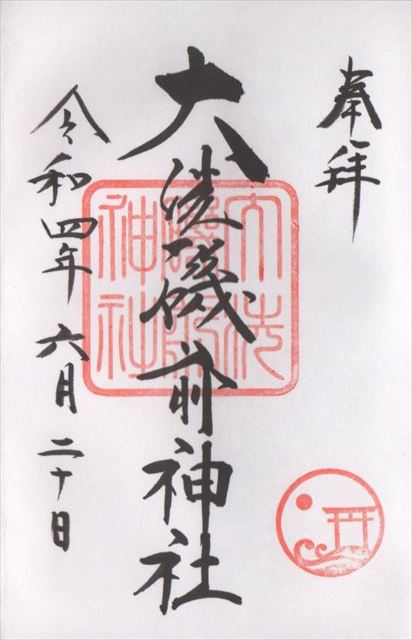 奉拝
大洗磯前神社
令和四年六月二十日
大洗
磯前
神社